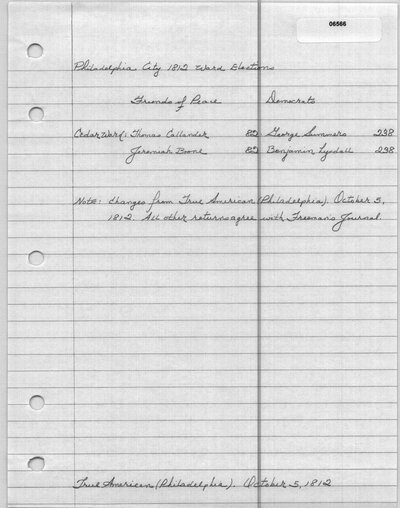 06566
Philadelphia City 1812 Ward Elections
Friends of Peace Democrats
Cedar Ward: Thomas Callander 82 George Summers 238
Jeremiah Boone 82 Benjamin Lyndall 238
Note: Changes from True American (Philadelphia). October 5,
1812. All other returns agree with Freeman's Journal.
True American (Philadelphia). October 5, 1812